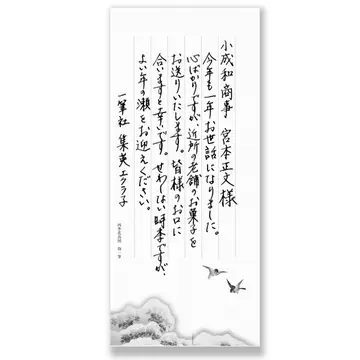 小成和商事 宮本正文様
今年も一年お世話になりました。
心ばかりですが、近所の老舗のお菓子を
お送りいたします。皆様のお口に
合いますと幸いです。せわしない時季ですが、
よい年の瀬をお迎えください。
一筆社 集英エクラ子